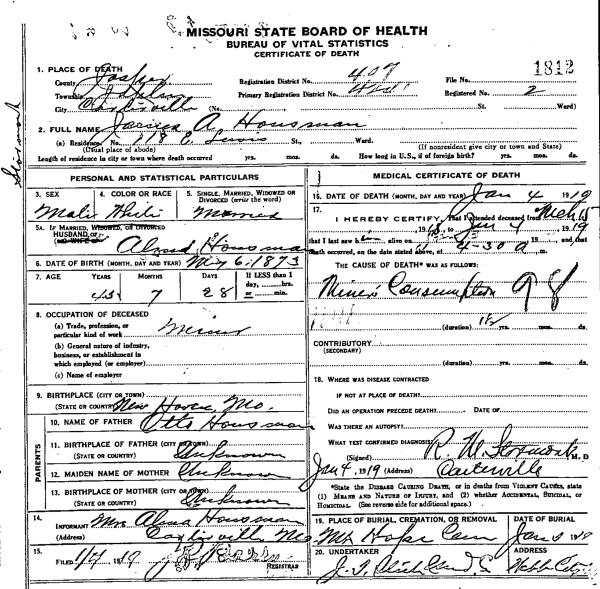 MISSOURI STATE BOARD OF HEALTH
BUREAU OF VITAL STATISTICS
CERTIFICATE OF DEATH
1. PLACE OF DEATH
County Jasper Registration District No. 407 File No. 1812
Township Primary Registration District No. Registered No. 2
City (No. St. Ward)
2. FULL NAME A. Housman
(a) Residence No. 718 E. St., Ward.
(Usual place of abode) (If nonresident give city or town and State)
Length of residence in city or town where death occurred yrs. mos. ds. How long in U.S., if of foreign birth? yrs. mos. ds.
PERSONAL AND STATISTICAL PARTICULARS
3. SEX 4. COLOR OR RACE 5. SINGLE, MARRIED, WIDOWED OR DIVORCED (write the word)
Male White Married
5A. IF MARRIED, WIDOWED, OR DIVORCED
HUSBAND OF
(OR) WIFE OF Alma Housman
6. DATE OF BIRTH (MONTH, DAY AND YEAR) May 6, 1873
7. AGE YEARS MONTHS DAYS If LESS than 1 day, hrs. or min.
45 7 28
8. OCCUPATION OF DECEASED
(a) Trade, profession, or particular kind of work Miner
(b) General nature of industry, business, or establishment in which employed (or employer)
(c) Name of employer
9. BIRTHPLACE (CITY OR TOWN)
(STATE OR COUNTRY) New Haven, Mo.
PARENTS
10. NAME OF FATHER Otto Housman
11. BIRTHPLACE OF FATHER (CITY OR TOWN)
(STATE OR COUNTRY) Unknown
12. MAIDEN NAME OF MOTHER Unknown
13. BIRTHPLACE OF MOTHER (CITY OR TOWN)
(STATE OR COUNTRY) Unknown
14. INFORMANT Mrs Alma Housman
(Address) Carterville Mo
15. FILED 1/7 1919 REGISTRAR
MEDICAL CERTIFICATE OF DEATH
16. DATE OF DEATH (MONTH, DAY AND YEAR) Jan 4 1919
17. I HEREBY CERTIFY, That I attended deceased from
to Jan 4, 1919
that I last saw h alive on 19, and that
death occurred, on the date stated above, at 4:30 a m.
THE CAUSE OF DEATH* WAS AS FOLLOWS:
Miners Consumption 98
(duration) 1½ yrs. mos. ds.
CONTRIBUTORY
(SECONDARY)
(duration) yrs. mos. ds.
18. WHERE WAS DISEASE CONTRACTED
IF NOT AT PLACE OF DEATH?
DID AN OPERATION PRECEDE DEATH? DATE OF
WAS THERE AN AUTOPSY?
WHAT TEST CONFIRMED DIAGNOSIS?
(Signed) R. M. Stormont M. D
Jan 4, 1919 (Address) Carterville
*State the DISEASE CAUSING DEATH, or in deaths from VIOLENT CAUSES, state
(1) MEANS AND NATURE OF INJURY, and (2) whether ACCIDENTAL, SUICIDAL, or
HOMICIDAL. (See reverse side for additional space.)
19. PLACE OF BURIAL, CREMATION, OR REMOVAL DATE OF BURIAL
Mt Hope Cem Jan
20. UNDERTAKER ADDRESS
Webb City
Stormont